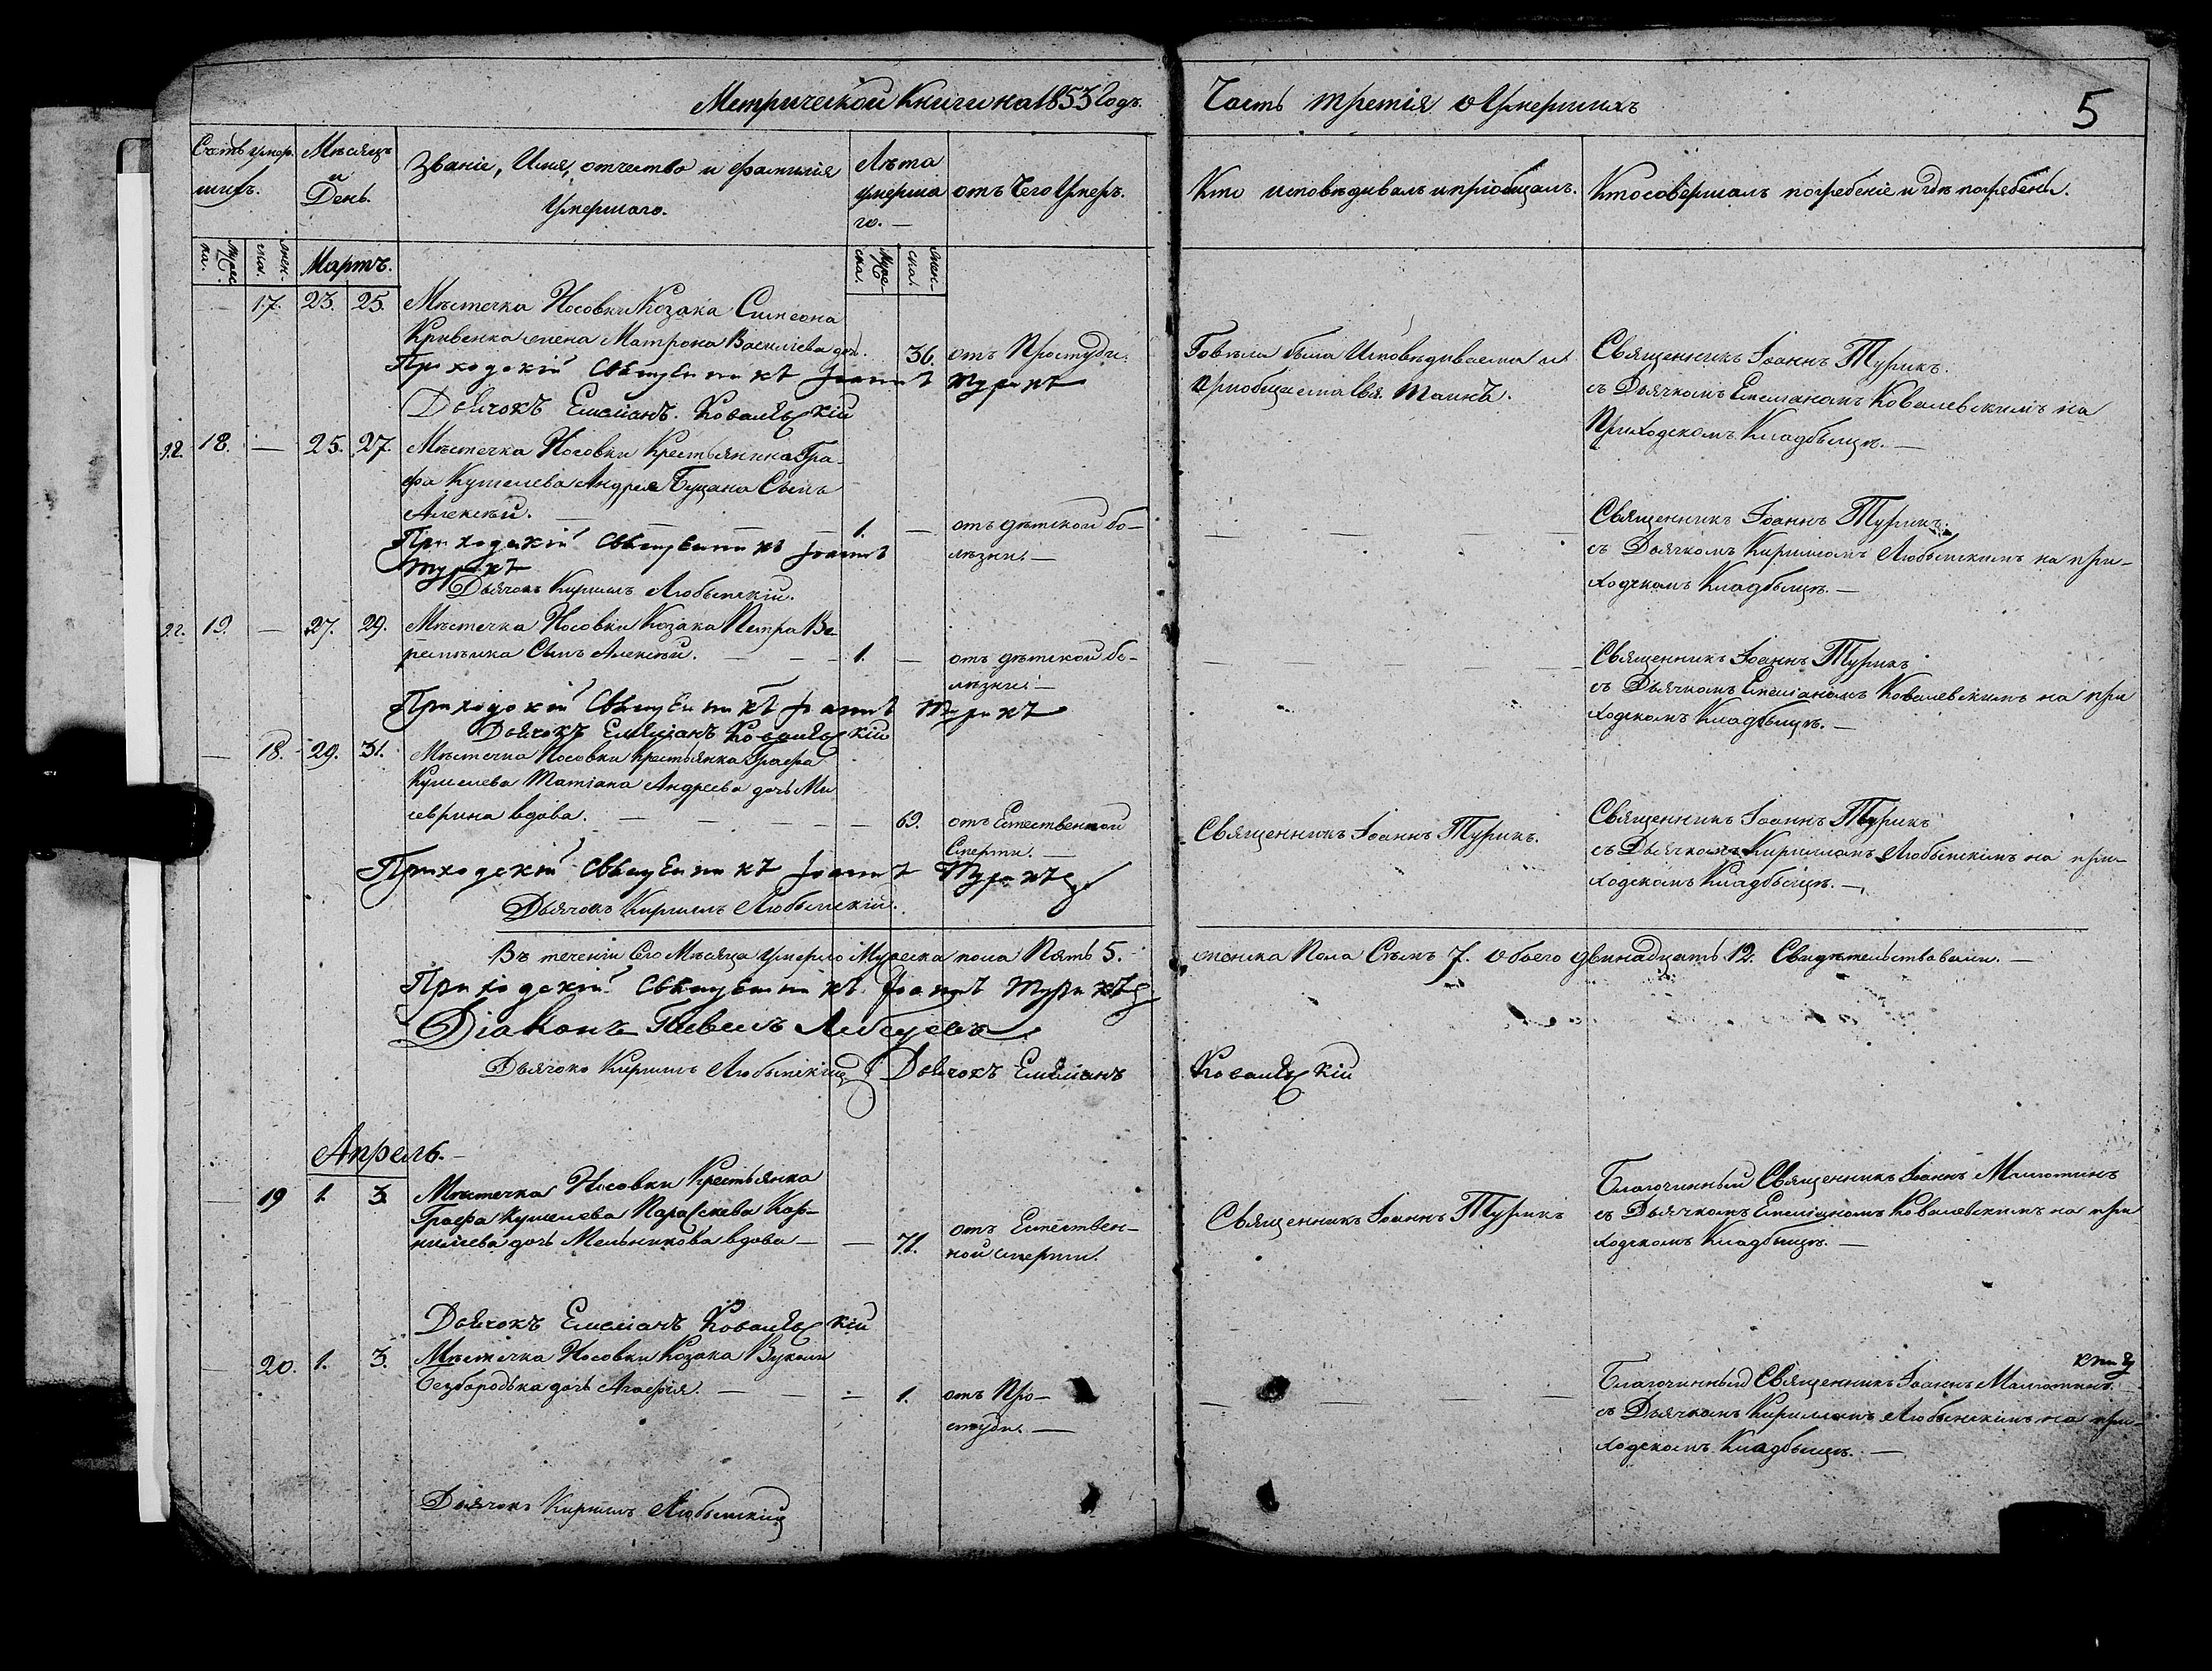 Метрической Книги на 1853 Годъ.
Часть третія о Умершихъ
5
Счетъ умер-
шихъ.
Мѣсяцъ
и
День.
Званіе, Имя, отчество и фамилія
Умершаго.
Лѣта
умерша
го. —
отъ Чего Умеръ.
Кто исповѣдывалъ и пріобщалъ.
Кто совершалъ погребеніе и гдѣ погребены.
Мужес
ка.
жен-
ска.
Мартъ.
Муже
ска.
жен-
ска.
— 17. 23. 25. Мѣстечка Носовки Козака Симеона
Кривенка жена Матрона Василіева доч. 36. отъ Простуды.
Приходскій Священникъ Іоаннъ Турикъ
Дьячокъ Емеліанъ Ковалевскій
Говѣла была Исповѣдываема и
пріобщаема Свя. Таинъ.
Священникъ Іоаннъ Турикъ.
съ Дьячкомъ Емеліаномъ Ковалевскимъ на
Приходскомъ Кладбыщѣ. —
18. — 25. 27. Мѣстечка Носовки Крестьянина Гра-
фа Кушелева Андрея Буцана Сынъ
Алексѣй. — 1. — отъ дѣтской бо-
лѣзни. —
Приходскій Священникъ Іоаннъ
Турикъ
Дьячокъ Кирилъ Любымскій.
Священникъ Іоаннъ Турикъ
съ Дьячкомъ Кириломъ Любымскимъ на при-
ходскомъ Кладбыщѣ. —
19. — 27. 29. Мѣстечка Носовки Козака Петра Ве-
ремѣика Сынъ Алексѣй. — 1. — отъ дѣтской бо-
лѣзни. —
Приходскій Священникъ Іоаннъ Турикъ
Дьячокъ Емеліанъ Ковалевскій
Священникъ Іоаннъ Турикъ
съ Дьячкомъ Емеліаномъ Ковалевскимъ на при
ходскомъ Кладбыщѣ. —
— 18. 29. 31. Мѣстечка Носовки Крестьянка Графа
Кушелева Татіана Андреева дочь Ми
севрина вдова. — 69. отъ Естественной
Смерти. —
Приходскій Священникъ Іоаннъ Турикъ
Дьячокъ Кирилъ Любымскій.
Священникъ Іоаннъ Турикъ.
Священникъ Іоаннъ Турикъ
съ Дьячкомъ Кириломъ Любымскимъ на при-
ходскомъ Кладбыщѣ. —
Въ теченіи Сего Мѣсяца умерло Мужеска пола Пять 5. женска Пола Семь 7. обоего двинадцать 12. Свидѣтельствовали. —
Приходскій Священникъ Іоаннъ Турикъ
Діаконъ Павелъ
Дьячокъ Кирилъ Любымскій Дьячокъ Емеліанъ Ковалевскій
Апрель.
— 19 1. 3. Мѣстечка Носовки Крестьянка
Графа Кушелева Параскева Кор-
нилиева дочь Мельникова вдова — 71. отъ Естествен-
ной смерти.
Священникъ Іоаннъ Турикъ
Благочинный Священникъ Іоаннъ Малютинъ
съ Дьячкомъ Емеліаномъ Ковалевскимъ на при
ходскомъ Кладбыщѣ. —
Дьячокъ Емеліанъ Ковалевскій
— 20. 1. 3. Мѣстечка Носовки Козака Вукола
Безбородька дочь Агафія. — 1. отъ Про-
студы. —
Благочинный Священникъ Іоаннъ Малютинъ.
съ Дьячкомъ Кириломъ Любымскимъ на при-
ходскомъ Кладбыщѣ. —
Дьячокъ Кирилъ Любымскій